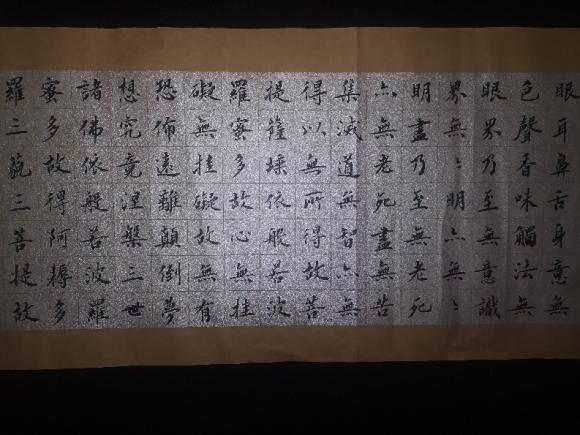 眼耳鼻舌身意無
色聲香味觸法無
眼界乃至無意識
界無〻明亦無〻
明盡乃至無老死
亦無老死盡無苦
集滅道無智亦無
得以無所得故菩
提薩埵依般若波
羅蜜多故心無挂
礙無挂礙故無有
恐怖遠離顛倒夢
想究竟涅槃三世
諸佛依般若波羅
蜜多故得阿耨多
羅三藐三菩提故